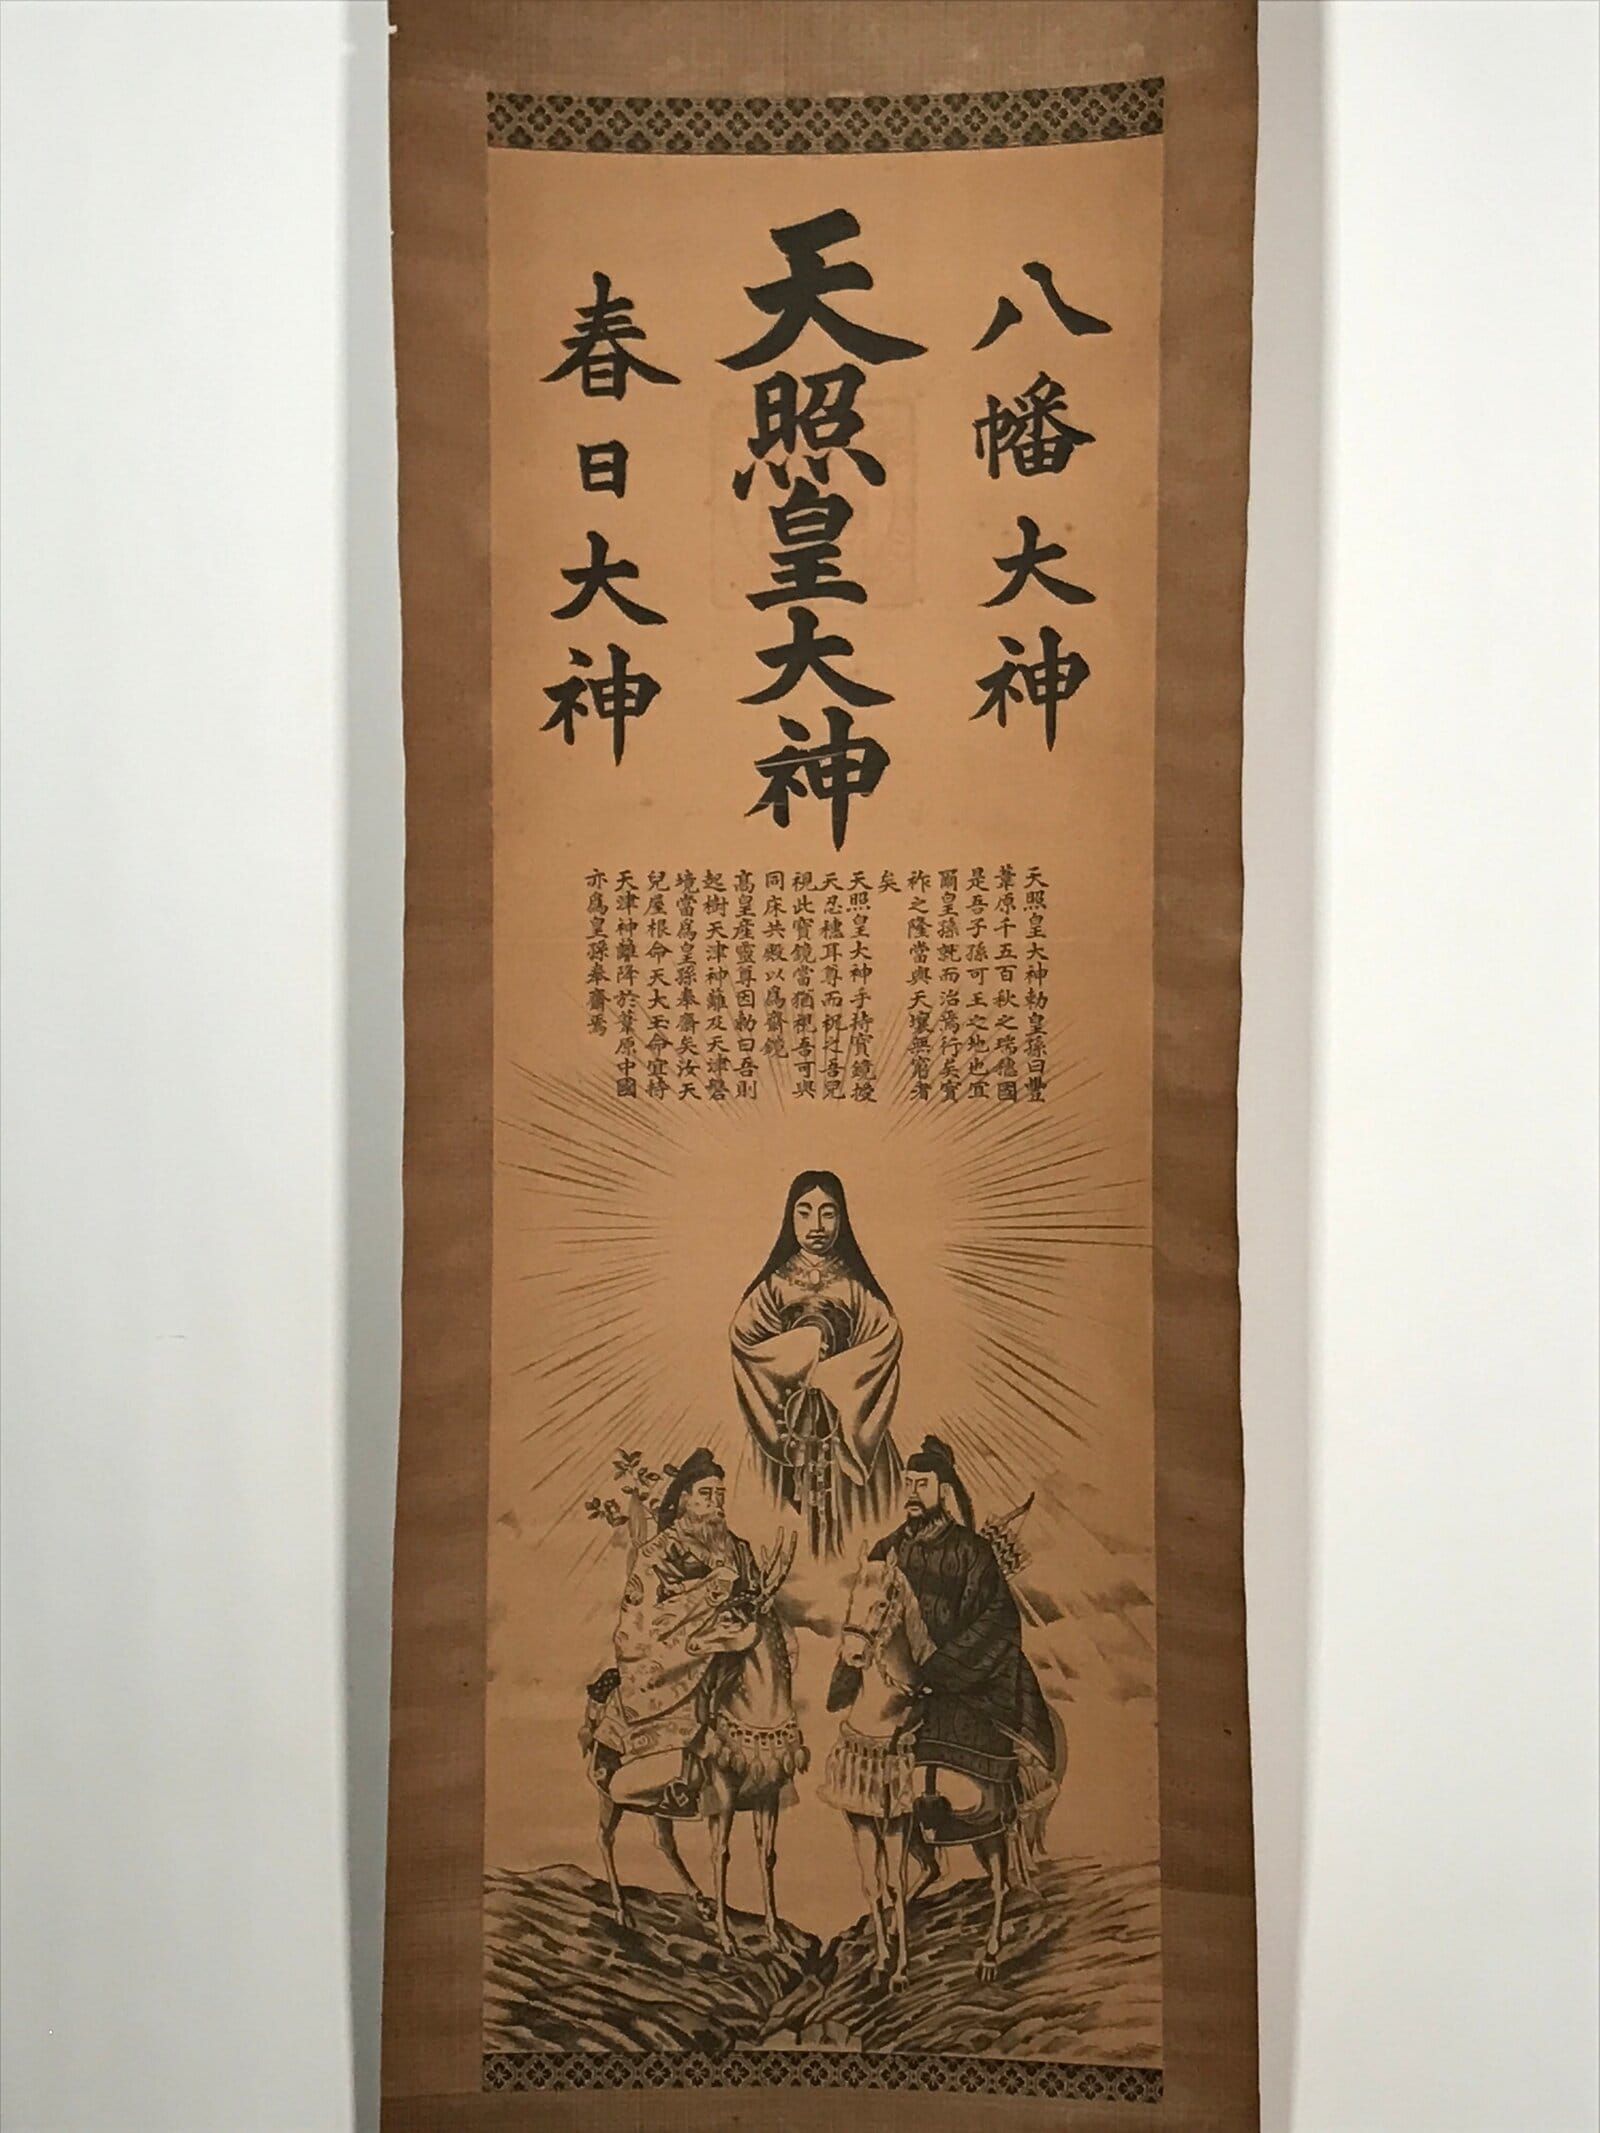 八幡大神
天照皇大神
春日大神
天照皇大神勅皇孫曰豐
葦原千五百秋之瑞穗國
是吾子孫可王之地也宜
爾皇孫就而治焉行矣寳
祚之隆當與天壤無窮者
矣
天照皇大神手持寳鏡授
天忍穗耳尊而祝之吾兒
視此寳鏡當猶視吾可與
同床共殿以爲齋鏡
高皇産靈尊因勅曰吾則
起樹天津神籬及天津磐
境當爲皇孫奉齋矣汝天
兒屋根命天太玉命宜持
天津神籬降於葦原中國
亦爲皇孫奉齋焉